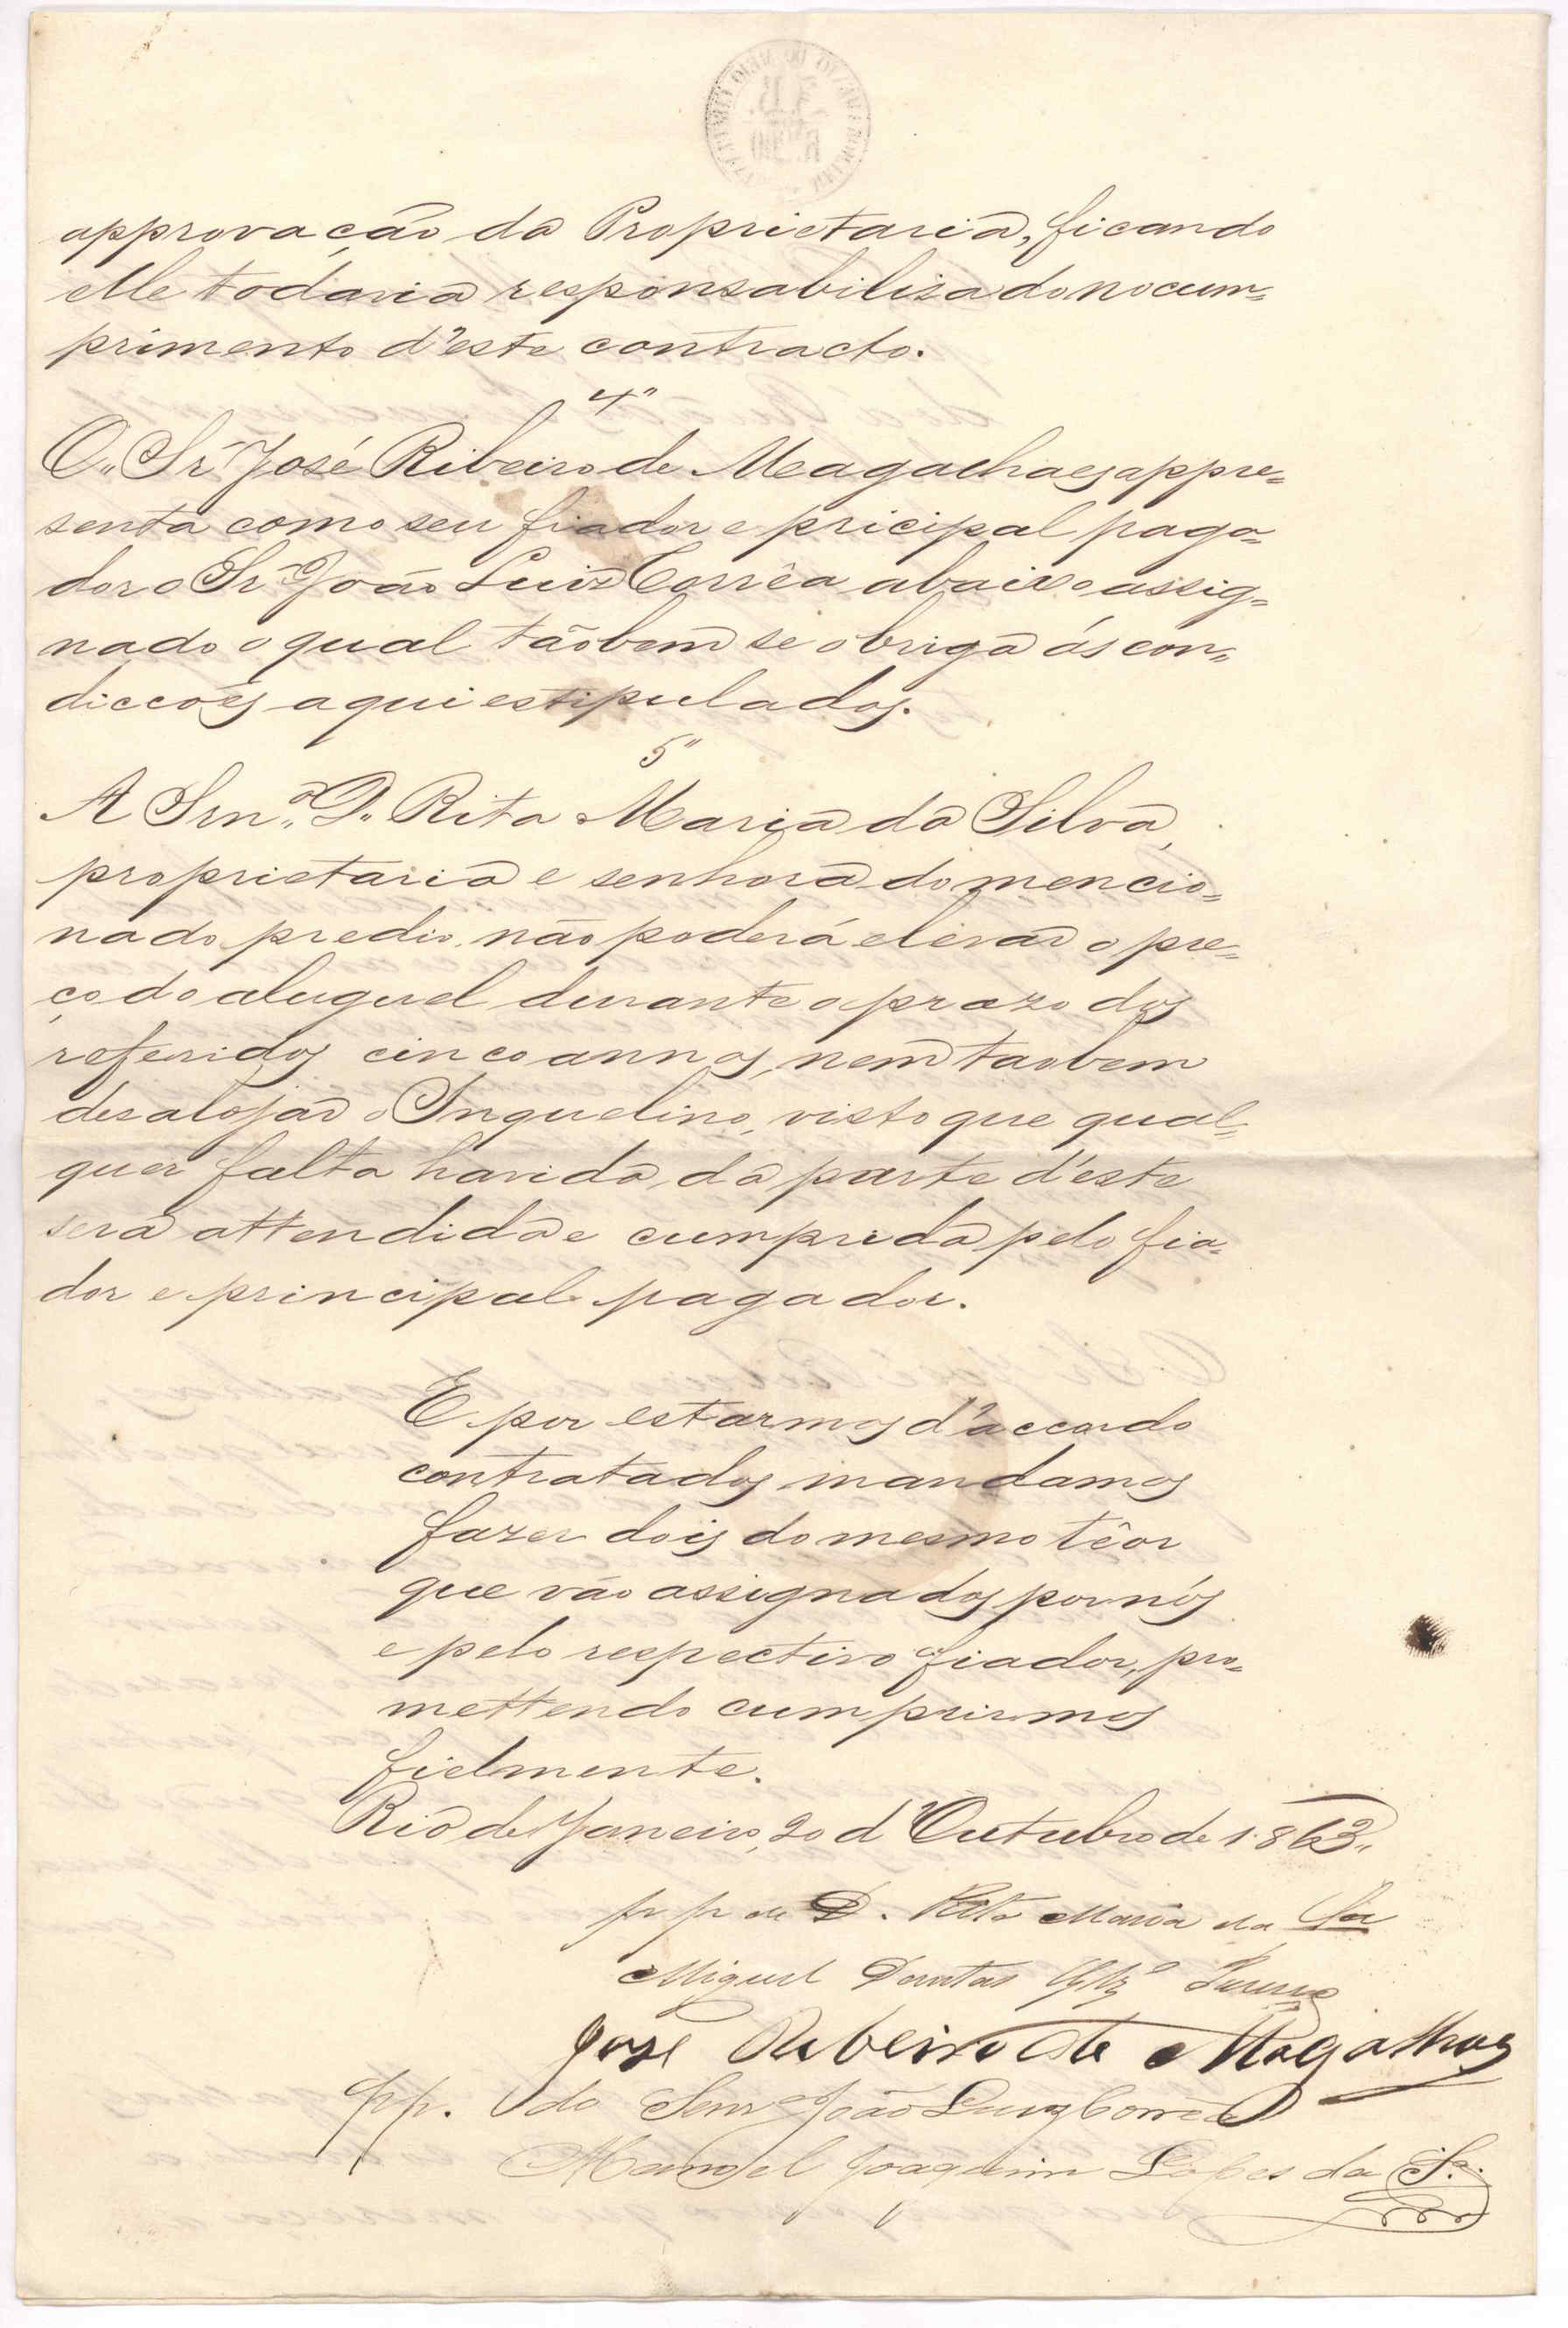 approvação da Proprietaria, ficando
elle todavia responsabilisado no cum=
primento d'este contracto.
4"
O" Sr. José Ribeiro de Magalhaes appre=
senta como seu fiador e pricipal paga=
dor o Sr. João Luiz Corrêa abaixo assig=
nado o qual tãobem se obriga ás con=
dicções aqui estipulados.
5"
A Snr.ª D. Rita Maria da Silva,
proprietaria e senhora do mencio=
nado predio, não poderá elevar o pre=
ço do aluguel durante o prazo dos
referidos cinco annos, nem taobem
desalojar o Inquelino, visto que qual=
quer falta havida da parte d'este
será attendida e cumprida pelo fia=
dor e principal pagador.
E por estarmos d'accordo
contratados mandamos
fazer dois do mesmo têor
que vão assignados por nós
e pelo respectivo fiador, pro=
mettendo cumprirmos
fielmente.
Rio de Janeiro, 20 d'Outubro de 1863"
p p de D. Rita Maria da Sa
Miguel Dantas
José Ribeiro de Magalhaes
pp. do Senr João Luiz Corrêa
Manoel Joaquim Lopes da Sa.